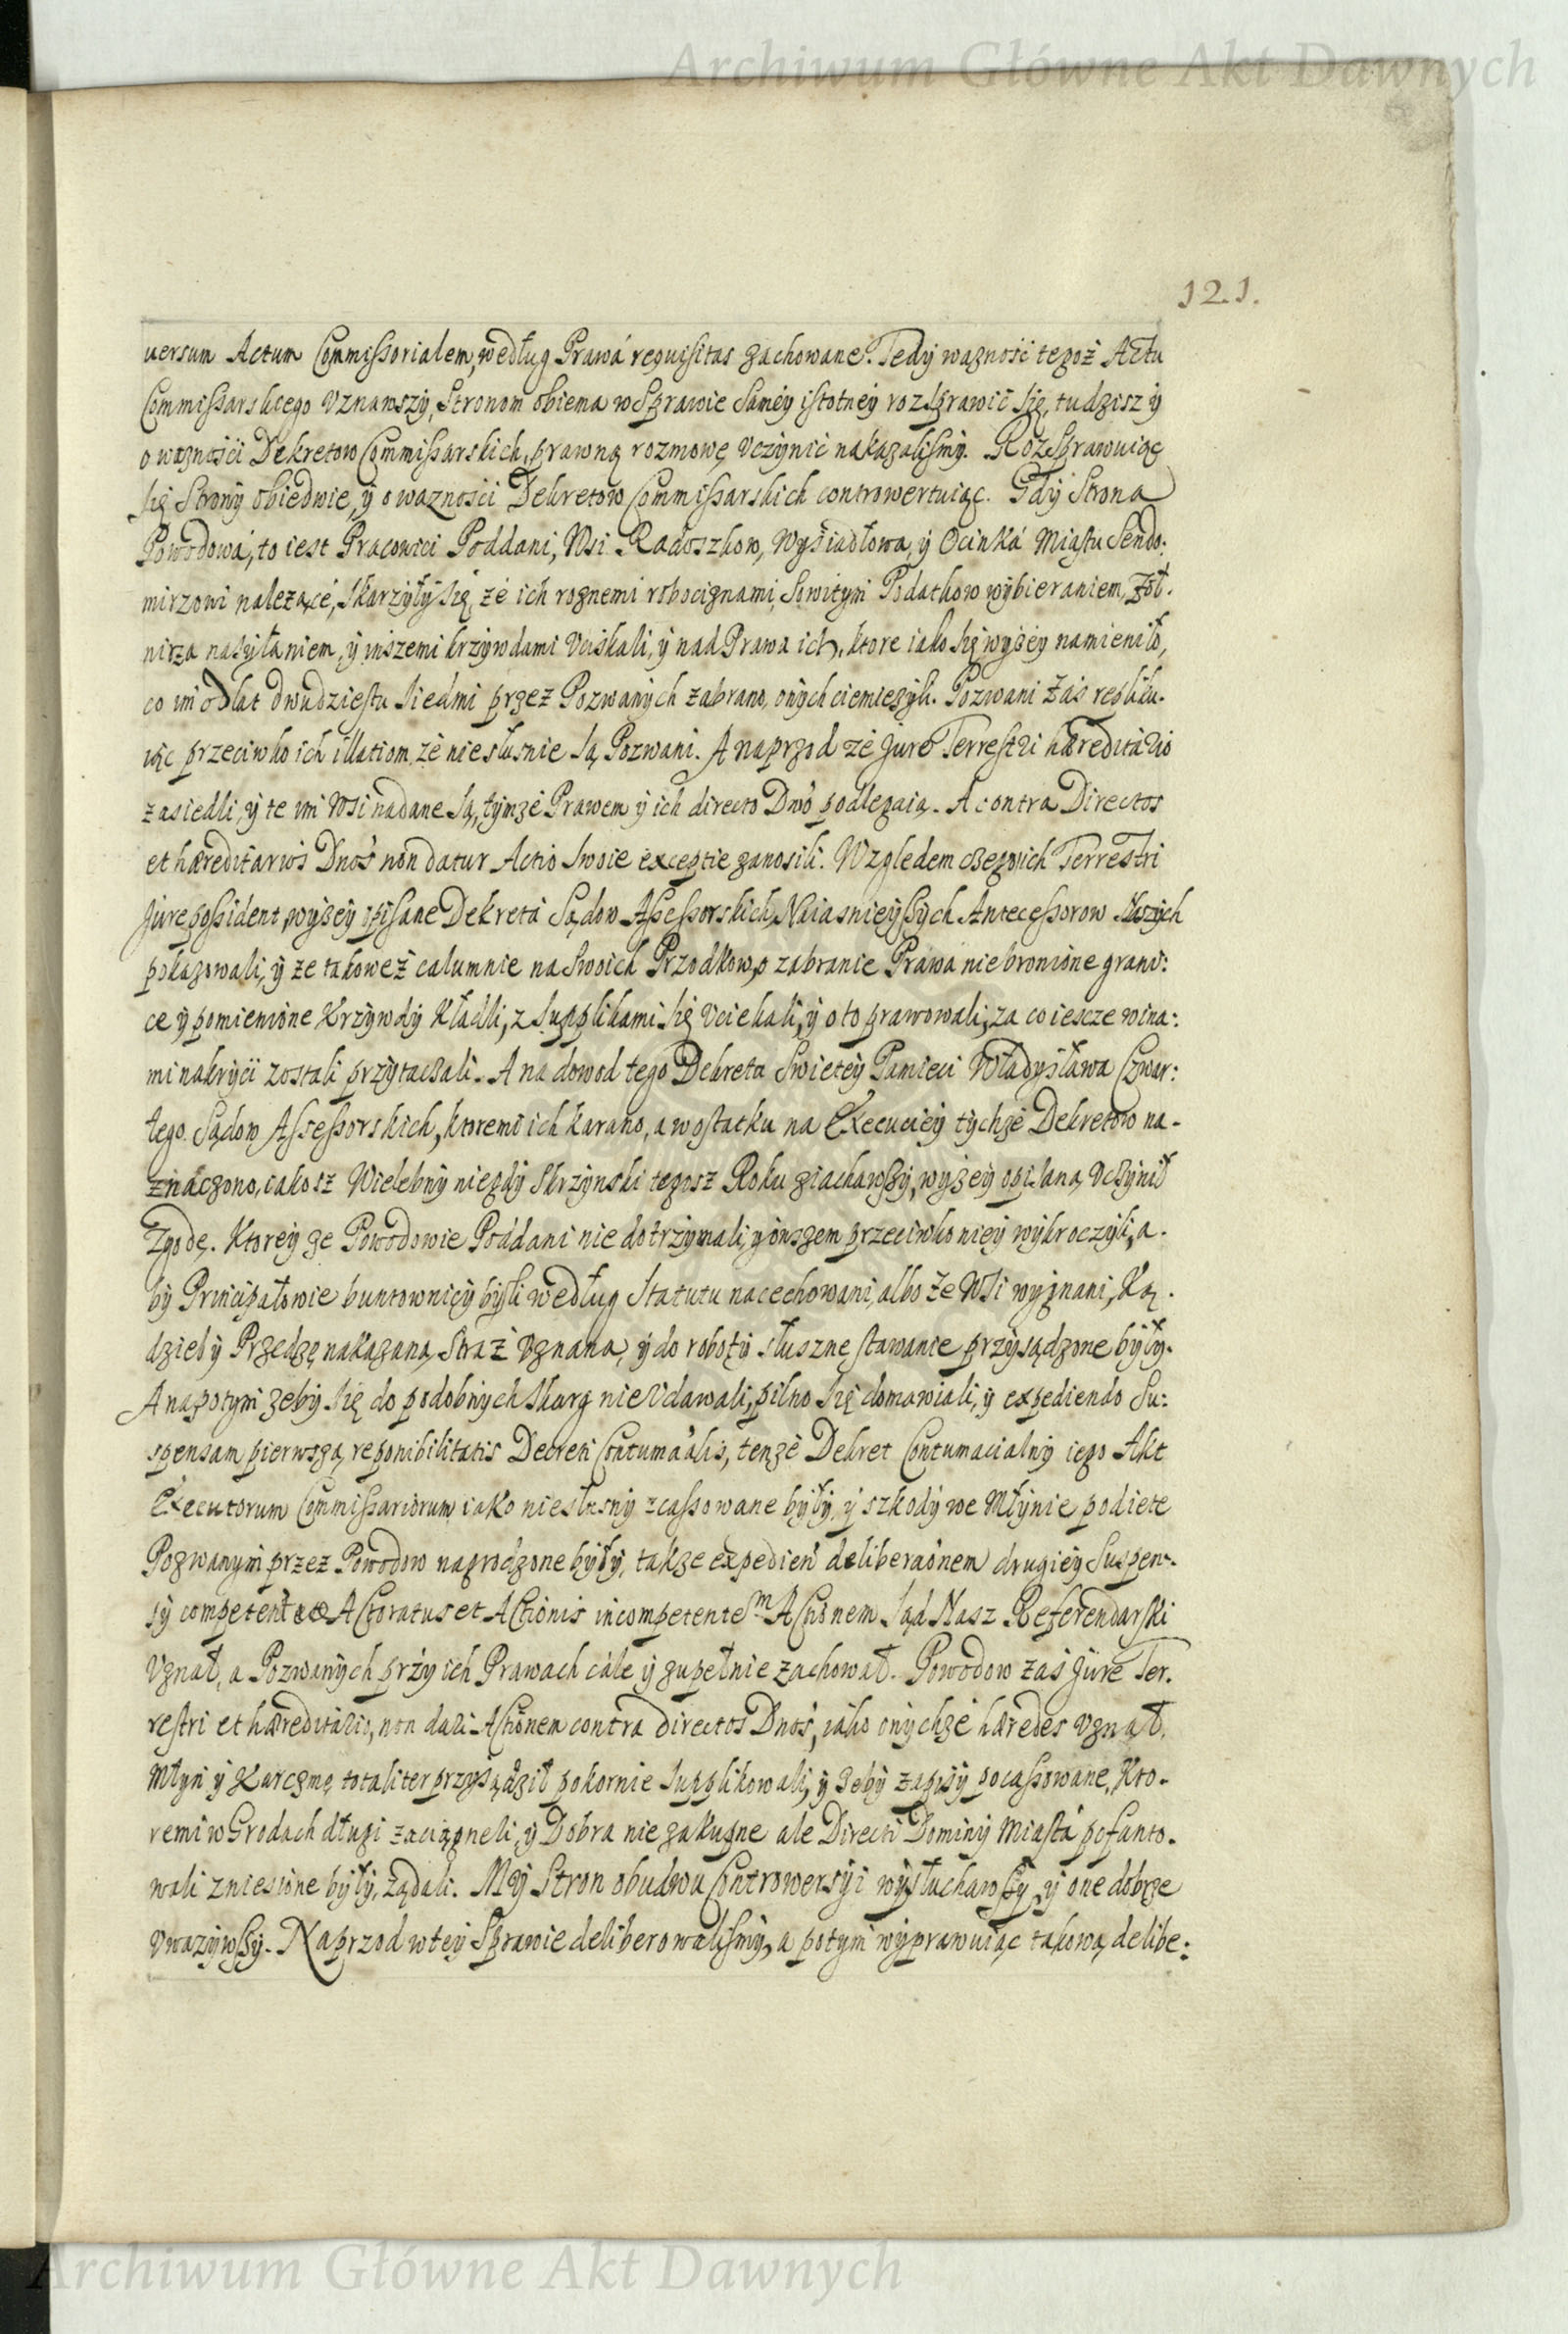 Archiwum Główne Akt Dawnych
121.
uersum Actum Commissorialem, według Prawa requisitas zachowane. Tedÿ wazność tegoż Actu
Commissarskiego Vznawszÿ, Stronom obiema w Sprawie Saméy istotnéy rozsprawić się, tudzisz ÿ
o waznośći Dekretow Commissarskich, prawną rozmowę Vczÿnić nakazalismÿ. Rozsprawuiąc
się Stronÿ obiedwie, ÿ o waznośći Dekretow Commissarskich controwertuiąc. Gdÿ Strona
Powodowa, to iest Pracowići Poddani, Wsi Radoszkow, Wÿsiadłowa, ÿ Ocinká Miastu Sendo:
mirzowi nalezące, skarzÿłÿ się, że ich roznemi robociznami, Sowitÿm Podatkow wÿbieraniem, żoł-
nirza nasÿłaniem, ÿ inszemi krzÿwdami Vciskali, ÿ nad Prawa ich, ktore iako się wÿżeÿ namieniło,
co im od lat dwudziestu siedmi przez Pozwanÿch zabrano, onÿch ciemiezÿli. Pozwani zaś repliku-
iąc przeciwko ich illatiom, że niesłusnie są Pozwani. A naprzod że Jure Terrestri hæreditario
zasiedli, ÿ te im Wsi nadane są, tÿmże Prawem ÿ ich directo Dnō podlegaią. A contra Directos
et hæreditarios Dnōs non datur Actio swoie exceptie zanosili. Wzgledem czego ich Terrestri
Jure possident, wÿzeÿ spisane Dekreta Sądow Assessorskich, Naiasnieÿszÿch Antecessorow Naszÿch
pokazowali, ÿ ze takoweż calumnie na Swoich Przodkow, o zabranie Prawa niebronione grani:
ce ÿ pomienione Krzÿwdÿ Kładli, z supplikami się Vciekali, ÿ o to prawowali, za co iescze wina:
mi nakrÿci zostali przÿtaczali. A na dowod tego Dekreta Swieteÿ Pamieci Władÿsława Czwar:
tego Sądow Assessorskich, ktoremi ich karano, a w ostatku na Execucieÿ tÿchże Dekretow na-
znaczono, iakosz Wielebnÿ niegdÿ Skrzÿnski tegosz Roku ziachawszÿ, wÿżeÿ opisaną Vczÿnił
Zgodę. Ktoreÿ ze Powodowie Poddani nie dotrzÿmali, ÿ owszem przeciwko nieÿ wÿkroczÿli, a-
bÿ Principałowie buntownicÿ bÿli według Statutu nacechowani, albo ze Wsi wÿgnani, Ką-
dzielÿ Przędzę nakazaną, Straż Vznaną, ÿ do robotÿ słuszne stawanie przÿsądzone bÿłÿ.
A napotÿm zebÿ się do podobnÿch skarg nie Vdawali, pilno się domawiali, ÿ expediendo Su:
spensam pierwszą reponibilitatis Decreti Contumacialis, tenże Dekret Contumacialnÿ iego Akt
Executorum Commissariorum iako niesłusnÿ zcassowane bÿłÿ, ÿ szkodÿ we Młÿnie podiete
Pozwanÿm przez Powodow nagrodzone bÿłÿ, takze expedien deliberaonem drugieÿ Suspen-
sÿ Actoratus et Actionis incompetentem Actionem Sąd Nasz Referendarski
Vznał, a Pozwanÿch przÿ ich Prawach cále ÿ zupełnie zachował. Powodow zaś Jure Ter-
restri et hæreditario, non dari Actionem contra directos Dnōs, iako onÿchże hæredes Vznał,
Młÿn ÿ Karczmę totaliter przÿsądził pokornie supplikowali, ÿ zebÿ zapisÿ pocassowane, Kto-
remi w Grodach długi zaciągneli, ÿ Dobra nie zakupne ale Directi Dominÿ Miasta pofanto-
wali zniesione bÿłÿ, żądali. MŸ Stron obudwu Controwersÿi wÿsłuchawszÿ, ÿ one dobrze
Vwazÿwszÿ. Naprzod w teÿ Sprawie deliberowalismÿ, a potÿm wÿprawuiąc takową delibe:
Archiwum Główne Akt Dawnych